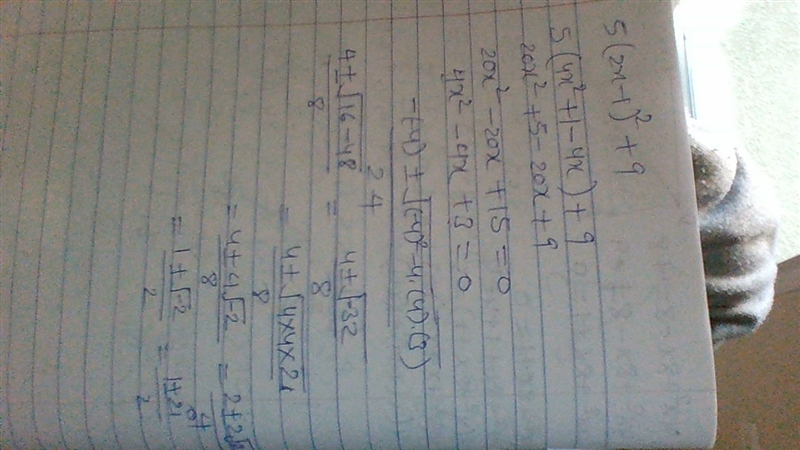 5(2x-1)² + 9
5(4x²+1-4x)+9
20x²+5-20x+9
20x²-20x+15=0
4x²-4x+3=0
-(-4) ± √(-4)²-4.(4).(3)
2 4
4±√16-48 / 8 = 4±√-32 / 8
= 4±√4x4x2i / 8
= 4±4√-2 / 8 = 2±2√
= 1±√-2 / 2 = 1±2i / 2